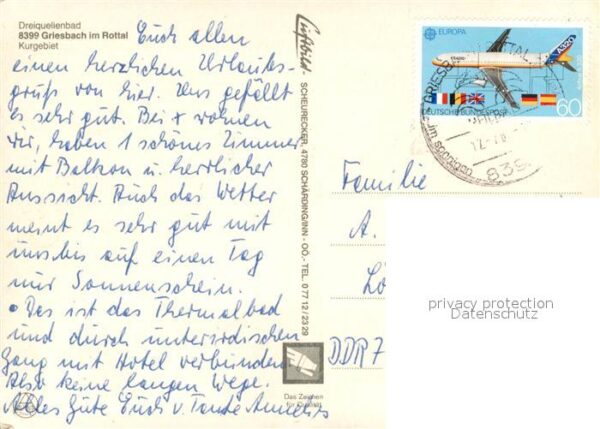 Dreiquellenbad
8399 Griesbach im Rottal
Kurgebiet
Euch allen
einen herzlichen Urlaubs-
gruß von hier. Uns gefällt
es sehr gut. Bei x wohnen
wir, haben 1 schönes Zimmer
mit Balkon u. herrlicher
Aussicht. Auch das Wetter
meint es sehr gut mit
uns bis auf einen Tag
nur Sonnenschein.
• Das ist das Thermalbad
und durch unterirdischen
Gang mit Hotel verbunden
Also keine langen Wege.
Alles Gute Euch v. Tante Annelies
Luftbild - SCHEURECKER, 4780 SCHÄRDING/INN - OÖ.- TEL. 0 77 12 / 23 29
Das Zeichen
für Qualität
EUROPA
A320
60
DEUTSCHE BUNDESPOST
GRIESB
ROTTAL
839
Familie
A.
Lö
DDR 7
privacy protection
Datenschutz